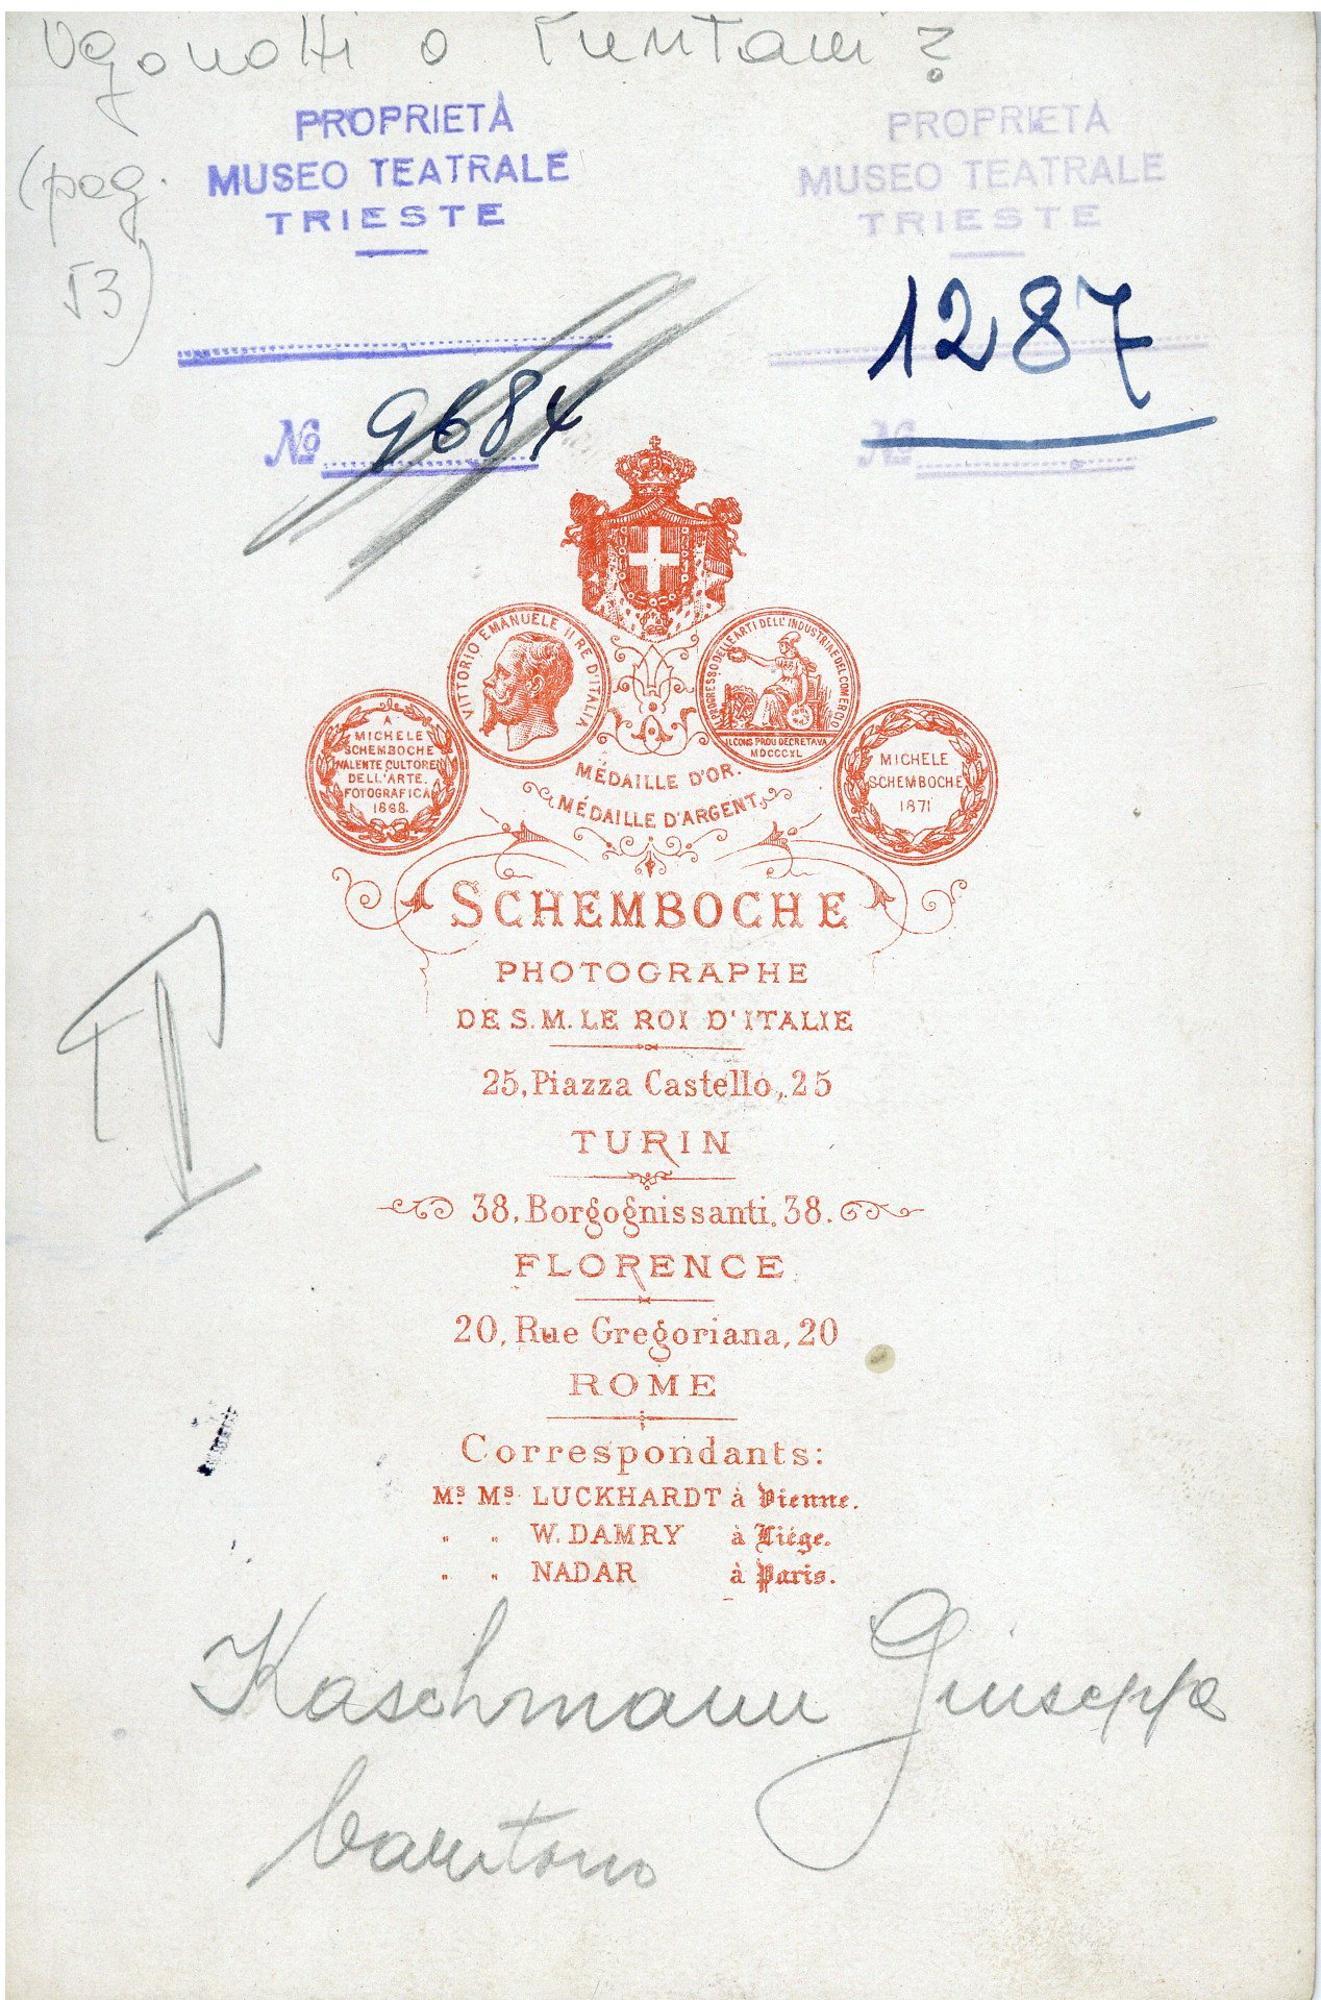 Ugonotti o Puritani ?
(pag.
53)
PROPRIETÀ
MUSEO TEATRALE
TRIESTE
No 9684
PROPRIETÀ
MUSEO TEATRALE
TRIESTE
1287
No
VITTORIO EMANUELE II RE D'ITALIA
MDCCCXL
A
MICHELE
SCHEMBOCHE
VALENTE CULTORE
DELL'ARTE.
FOTOGRAFICA
1868.
MICHELE
SCHEMBOCHE
1871
MÉDAILLE D'OR.
MÉDAILLE D'ARGENT
SCHEMBOCHE
PHOTOGRAPHE
DE S.M. LE ROI D'ITALIE
25, Piazza Castello, 25
TURIN
38, Borgognissanti, 38.
FLORENCE
20, Rue Gregoriana, 20
ROME
Correspondants:
Ms Ms LUCKHARDT à Vienne.
" " W. DAMRY à Liége.
" " NADAR à Paris.
Kaschmann Giuseppe
baritono